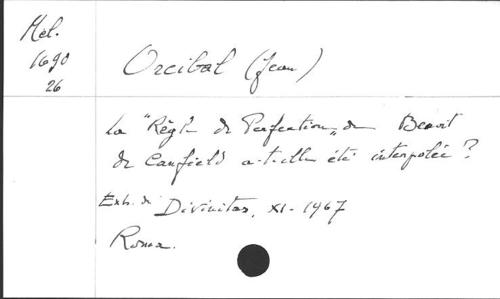 Mél.
1690
26
Orcibal (Jean)
La "Règle de Perfection" de Benoit
de Canfield a-t-elle été interpolée ?
Extr. de Divinitas, XI - 1967
Roma.